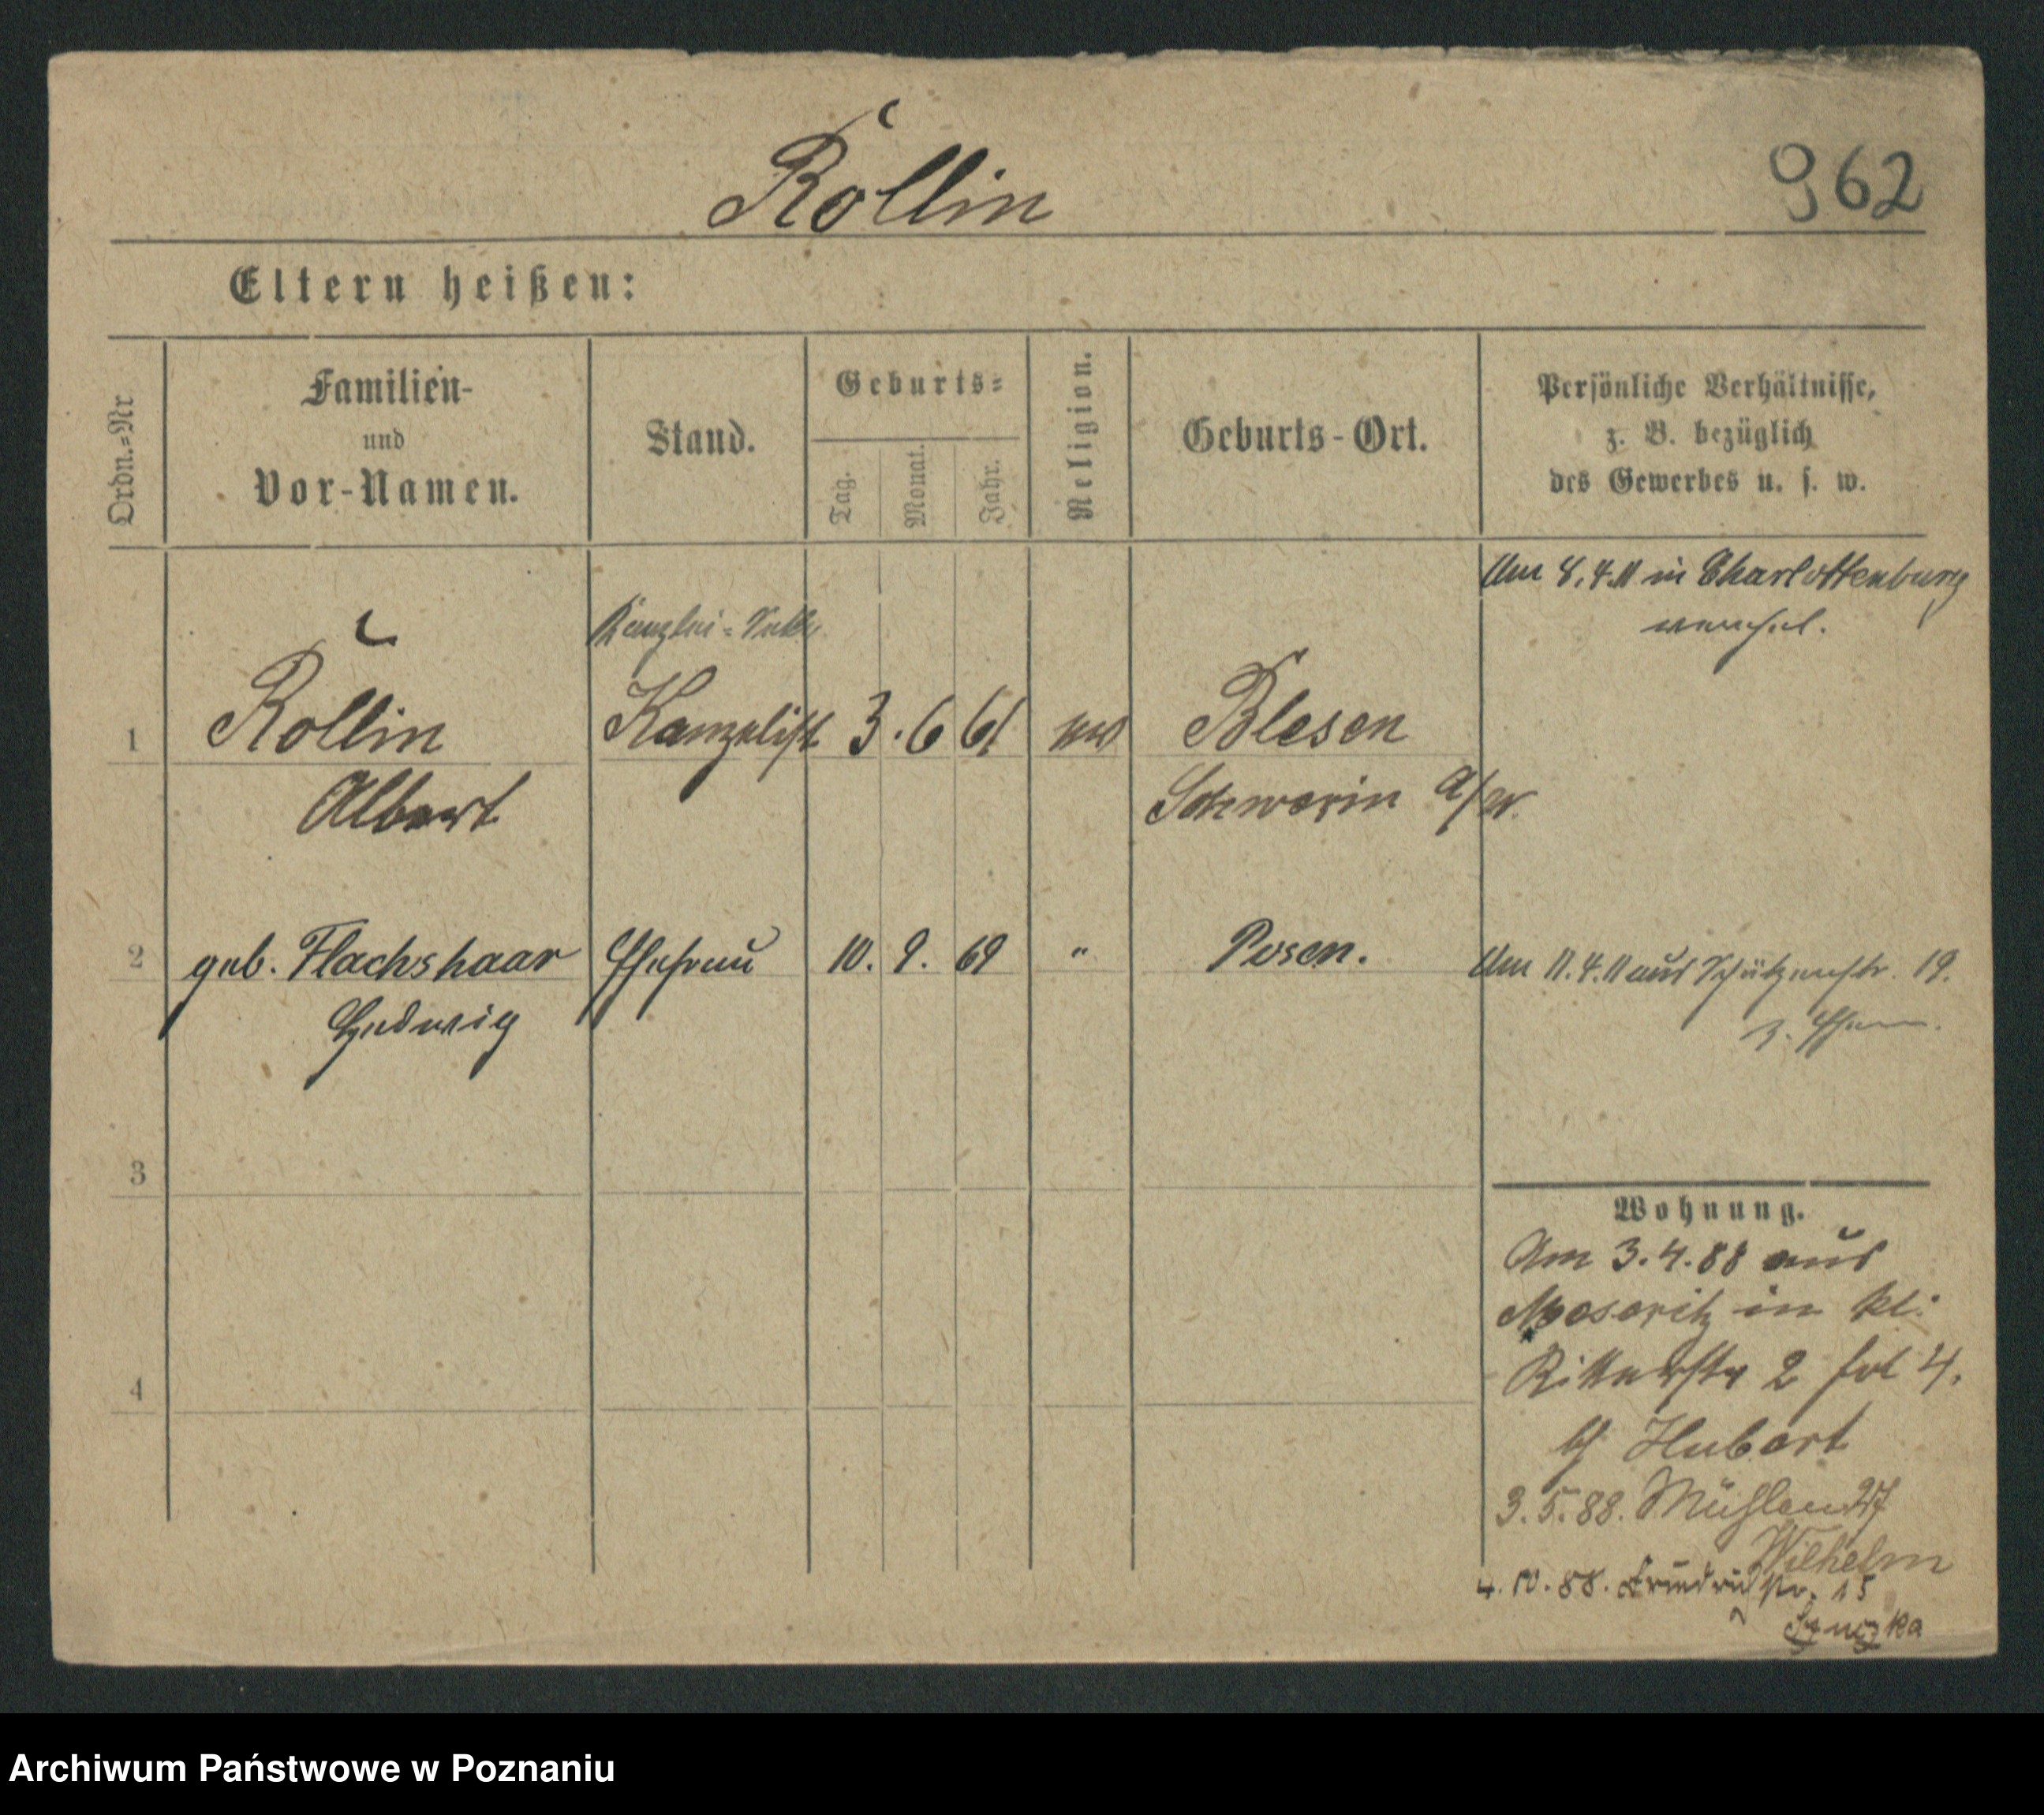 Rollin
962
Eltern heißen:
Ordn.=Nr
Familien-
und
Vor-Namen.
Stand.
Geburts=
Tag.
Monat.
Jahr.
Religion.
Geburts-Ort.
Persönliche Verhältnisse,
z. B. bezüglich
des Gewerbes u. s. w.
Am 8.4.11 in Charlottenburg
Kanzlei=
1 Rollin Kanzelist 3. 6 61 Blesen
Albert Schwerin a/W.
2 geb. Flachshaar Ehefrau 10. 9. 69 " Posen. Am 11.4.11 aus Schützenstr. 19.
Hedwig z. Ehem.
3
Wohnung.
Am 3.4.88 aus
Meseritz in kl:
Ritterstr 2 4.
4
by Hubert
3.5.88. Mühlen 27
Wilhelm
4.10.88. Friedrichstr. 15
Archiwum Państwowe w Poznaniu